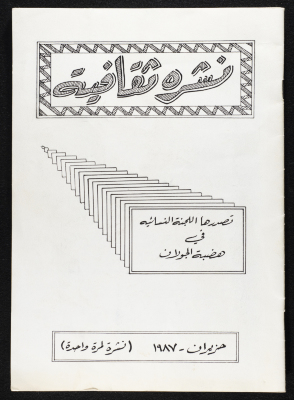 نشره ثقافية
تصدرها اللجنة النسائيه
في
هضبة الجولان
حزيران - ١٩٨٧ (نشرة لمرة واحدة)